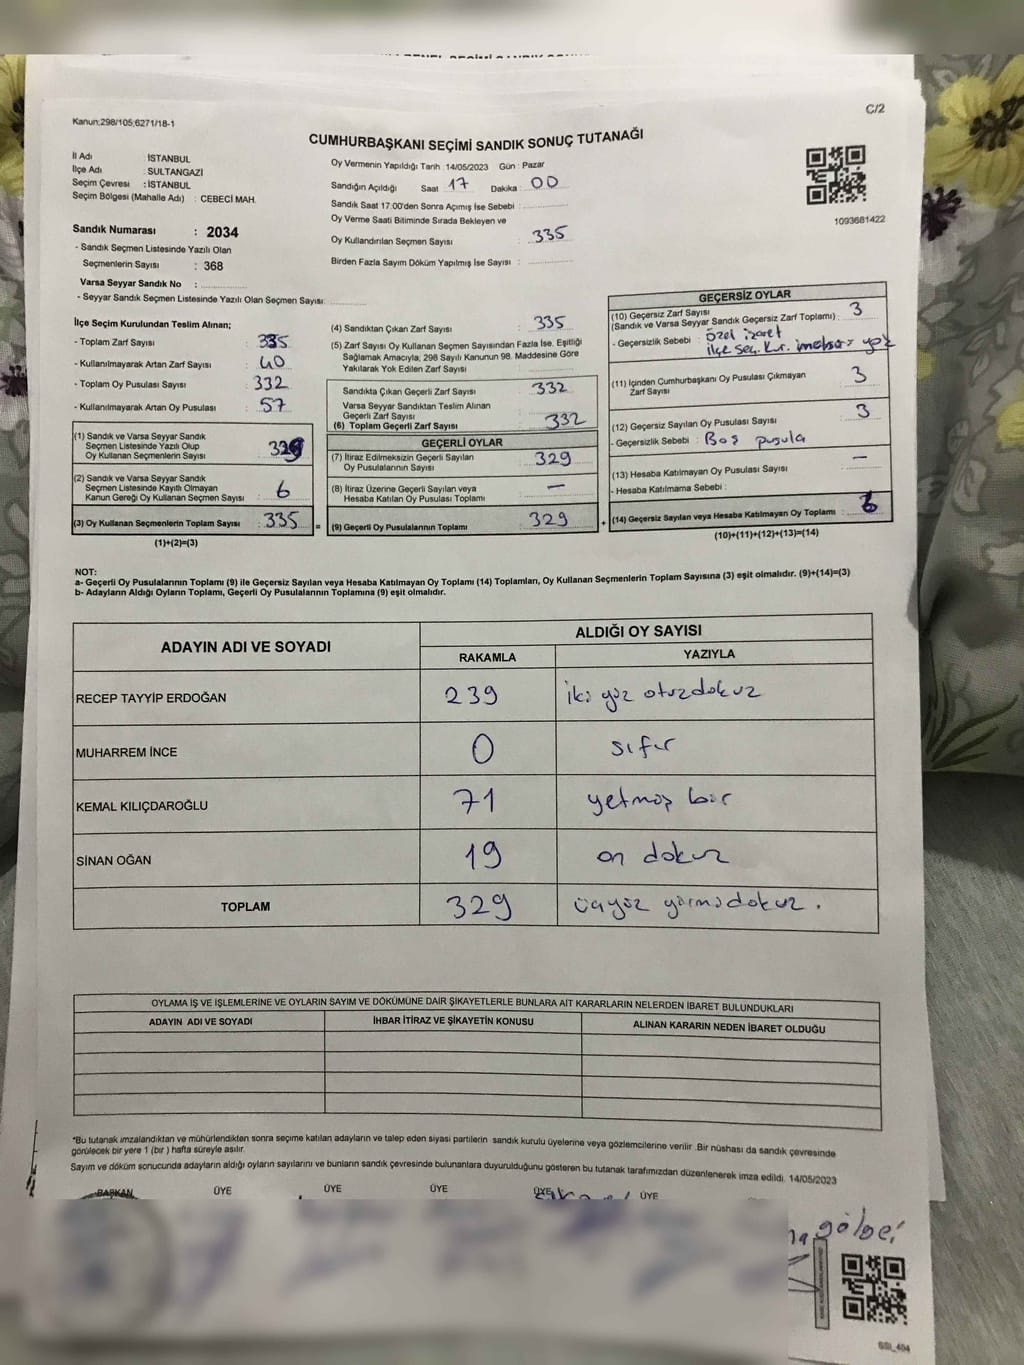 C/2
Kanun;298/105;6271/18-1
CUMHURBAŞKANI SEÇİMİ SANDIK SONUÇ TUTANAĞI
İl Adı : İSTANBUL
İlçe Adı : SULTANGAZİ
Seçim Çevresi : İSTANBUL
Seçim Bölgesi (Mahalle Adı) : CEBECİ MAH.
Sandık Numarası : 2034
- Sandık Seçmen Listesinde Yazılı Olan
Seçmenlerin Sayısı : 368
Varsa Seyyar Sandık No :
- Seyyar Sandık Seçmen Listesinde Yazılı Olan Seçmen Sayısı:
Oy Vermenin Yapıldığı Tarih :14/05/2023 Gün : Pazar
Sandığın Açıldığı Saat :17 Dakika : 00
Sandık Saat 17:00'den Sonra Açımış İse Sebebi :
Oy Verme Saati Bitiminde Sırada Bekleyen ve
Oy Kullandırılan Seçmen Sayısı : 335
Birden Fazla Sayım Döküm Yapılmış İse Sayısı :
1093681422
İlçe Seçim Kurulundan Teslim Alınan;
- Toplam Zarf Sayısı : 335
- Kullanılmayarak Artan Zarf Sayısı : 40
- Toplam Oy Pusulası Sayısı : 332
- Kullanılmayarak Artan Oy Pusulası : 57
(1) Sandık ve Varsa Seyyar Sandık
Seçmen Listesinde Yazılı Olup
Oy Kullanan Seçmenlerin Sayısı : 329
(2) Sandık ve Varsa Seyyar Sandık
Seçmen Listesinde Kayıtlı Olmayan
Kanun Gereği Oy Kullanan Seçmen Sayısı : 6
(3) Oy Kullanan Seçmenlerin Toplam Sayısı : 335 =
(1)+(2)=(3)
(4) Sandıktan Çıkan Zarf Sayısı : 335
(5) Zarf Sayısı Oy Kullanan Seçmen Sayısından Fazla İse, Eşitliği
Sağlamak Amacıyla; 298 Sayılı Kanunun 98. Maddesine Göre
Yakılarak Yok Edilen Zarf Sayısı :
Sandıkta Çıkan Geçerli Zarf Sayısı : 332
Varsa Seyyar Sandıktan Teslim Alınan
Geçerli Zarf Sayısı :
(6) Toplam Geçerli Zarf Sayısı : 332
GEÇERLİ OYLAR
(7) İtiraz Edilmeksizin Geçerli Sayılan
Oy Pusulalarının Sayısı : 329
(8) İtiraz Üzerine Geçerli Sayılan veya
Hesaba Katılan Oy Pusulası Toplamı : —
(9) Geçerli Oy Pusulalarının Toplamı : 329 +
GEÇERSİZ OYLAR
(10) Geçersiz Zarf Sayısı
(Sandık ve Varsa Seyyar Sandık Geçersiz Zarf Toplamı) : 3
- Geçersizlik Sebebi : özel işaret
ilçe seç. kur. yok
(11) İçinden Cumhurbaşkanı Oy Pusulası Çıkmayan
Zarf Sayısı : 3
(12) Geçersiz Sayılan Oy Pusulası Sayısı : 3
- Geçersizlik Sebebi : Boş pusula
(13) Hesaba Katılmayan Oy Pusulası Sayısı : —
- Hesaba Katılmama Sebebi :
(14) Geçersiz Sayılan veya Hesaba Katılmayan Oy Toplamı : 6
(10)+(11)+(12)+(13)=(14)
NOT:
a- Geçerli Oy Pusulalarının Toplamı (9) ile Geçersiz Sayılan veya Hesaba Katılmayan Oy Toplamı (14) Toplamları, Oy Kullanan Seçmenlerin Toplam Sayısına (3) eşit olmalıdır. (9)+(14)=(3)
b- Adayların Aldığı Oyların Toplamı, Geçerli Oy Pusulalarının Toplamına (9) eşit olmalıdır.
ADAYIN ADI VE SOYADI ALDIĞI OY SAYISI
RAKAMLA YAZIYLA
RECEP TAYYİP ERDOĞAN 239 iki yüz otuzdokuz
MUHARREM İNCE 0 sıfır
KEMAL KILIÇDAROĞLU 71 yetmiş bir
SİNAN OĞAN 19 on dokuz
TOPLAM 329 üçyüz yirmidokuz.
OYLAMA İŞ VE İŞLEMLERİNE VE OYLARIN SAYIM VE DÖKÜMÜNE DAİR ŞİKAYETLERLE BUNLARA AİT KARARLARIN NELERDEN İBARET BULUNDUKLARI
ADAYIN ADI VE SOYADI İHBAR İTİRAZ VE ŞİKAYETİN KONUSU ALINAN KARARIN NEDEN İBARET OLDUĞU
*Bu tutanak imzalandıktan ve mühürlendikten sonra seçime katılan adayların ve talep eden siyasi partilerin sandık kurulu üyelerine veya gözlemcilerine verilir .Bir nüshası da sandık çevresinde
görülecek bir yere 1 (bir ) hafta süreyle asılır.
Sayım ve döküm sonucunda adayların aldığı oyların sayılarını ve bunların sandık çevresinde bulunanlara duyurulduğunu gösteren bu tutanak tarafımızdan düzenlenerek imza edildi. 14/05/2023
BAŞKAN ÜYE ÜYE ÜYE ÜYE ÜYE